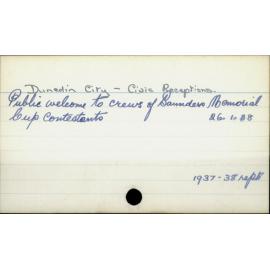 Dunedin City - Civic Receptions.
Public welcome to crews of Saunders Memorial
Cup contestants 26.1.38
1937-38